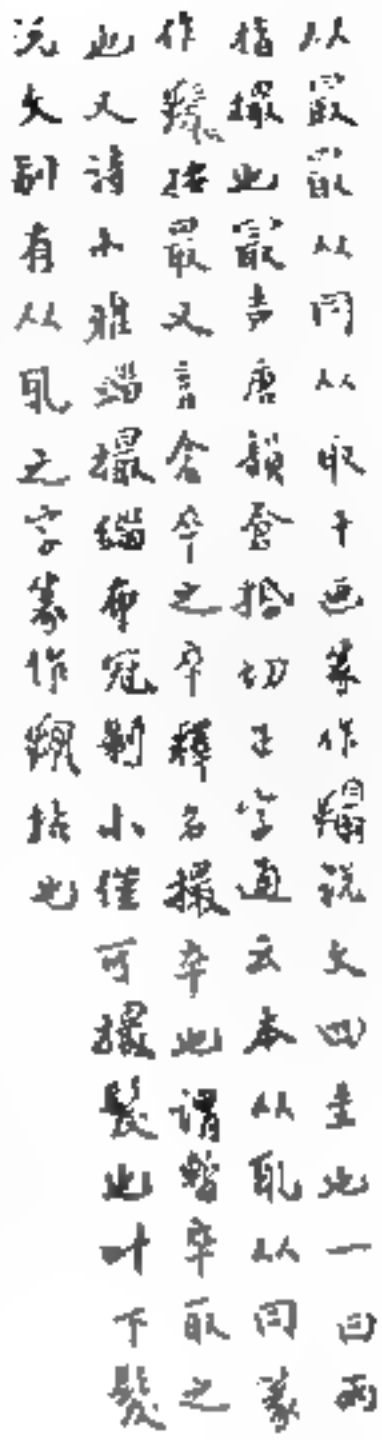 从最最从冃从取十画篆作𢷏说文四圭也一曰两
指撮也最声唐韵仓括切正字通云本从𠬪从冃篆
作𢷏按最又言仓卒之卒释名撮卒也谓暂卒取之
也又诗小雅缁撮缁布冠制小仅可撮髮也叶下髮
说文别有从𠬪之字篆作𢷏括也